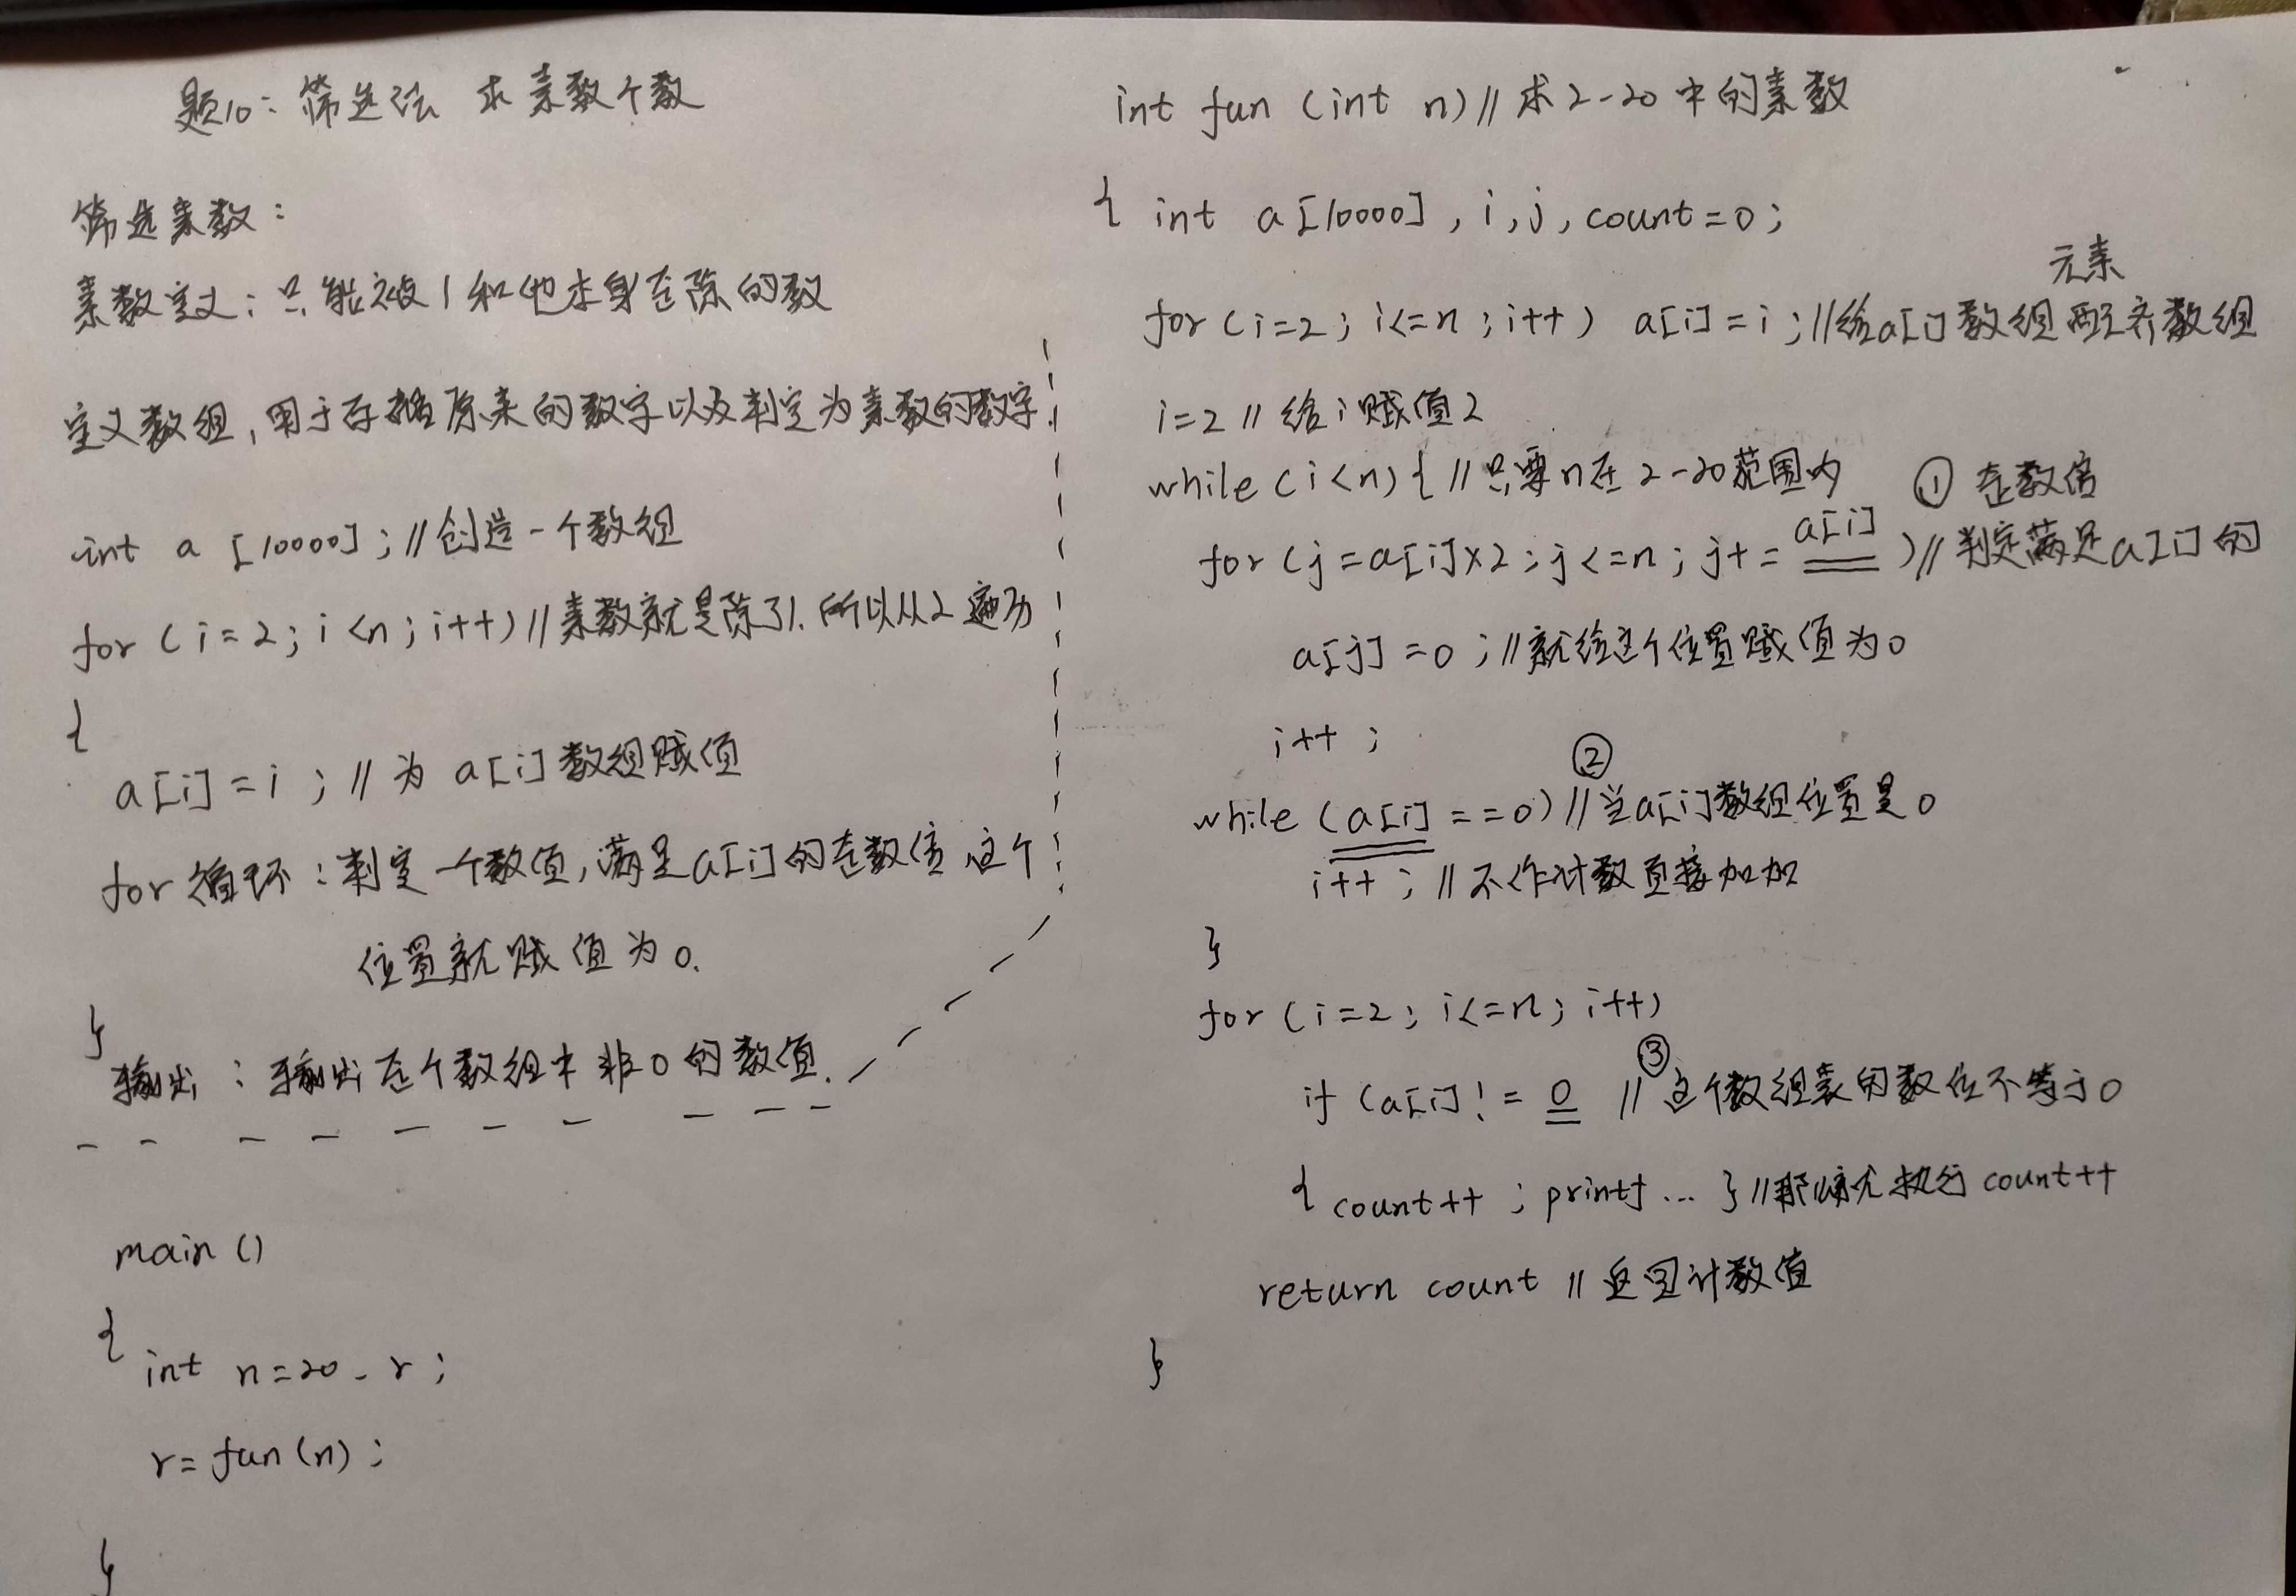 题10：筛选法 求素数个数
筛选素数：
素数定义：只能被1和他本身整除的数
定义数组，用于存储原来的数字以及判定为素数的数字.
int a [10000]；//创造一个数组
for (i=2；i<n；i++) //素数就是除了1.所以从2遍历
{
a[i]=i；// 为 a[i]数组赋值
for循环：判定一个数值，满足a[i]的整数倍 这个
位置就赋值为0.
}
输出：输出整个数组中非0的数值.
main ()
{
int n=20 - r；
r= fun(n)；
}
int fun (int n) // 求2-20中的素数
{ int a[10000], i, j, count=0；
元素
for (i=2；i<=n；i++) a[i]=i；//给a[i]数组配齐数组
i=2 // 给i赋值2
while (i<n) { // 只要n在2-20范围内
① 整数倍
for (j=a[i]×2；j<=n；j+= a[i] ) // 判定满足a[i]的
a[j] =0；//就给这个位置赋值为0
i++；
②
while (a[i] ==0) //当a[i]数组位置是0
i++；// 不作计数直接加加
}
for (i=2；i<=n；i++)
③
if (a[i] != 0 // 这个数组装的数位不等于0
{ count++；printf ... } //那就 执行 count++
return count // 返回计数值
}